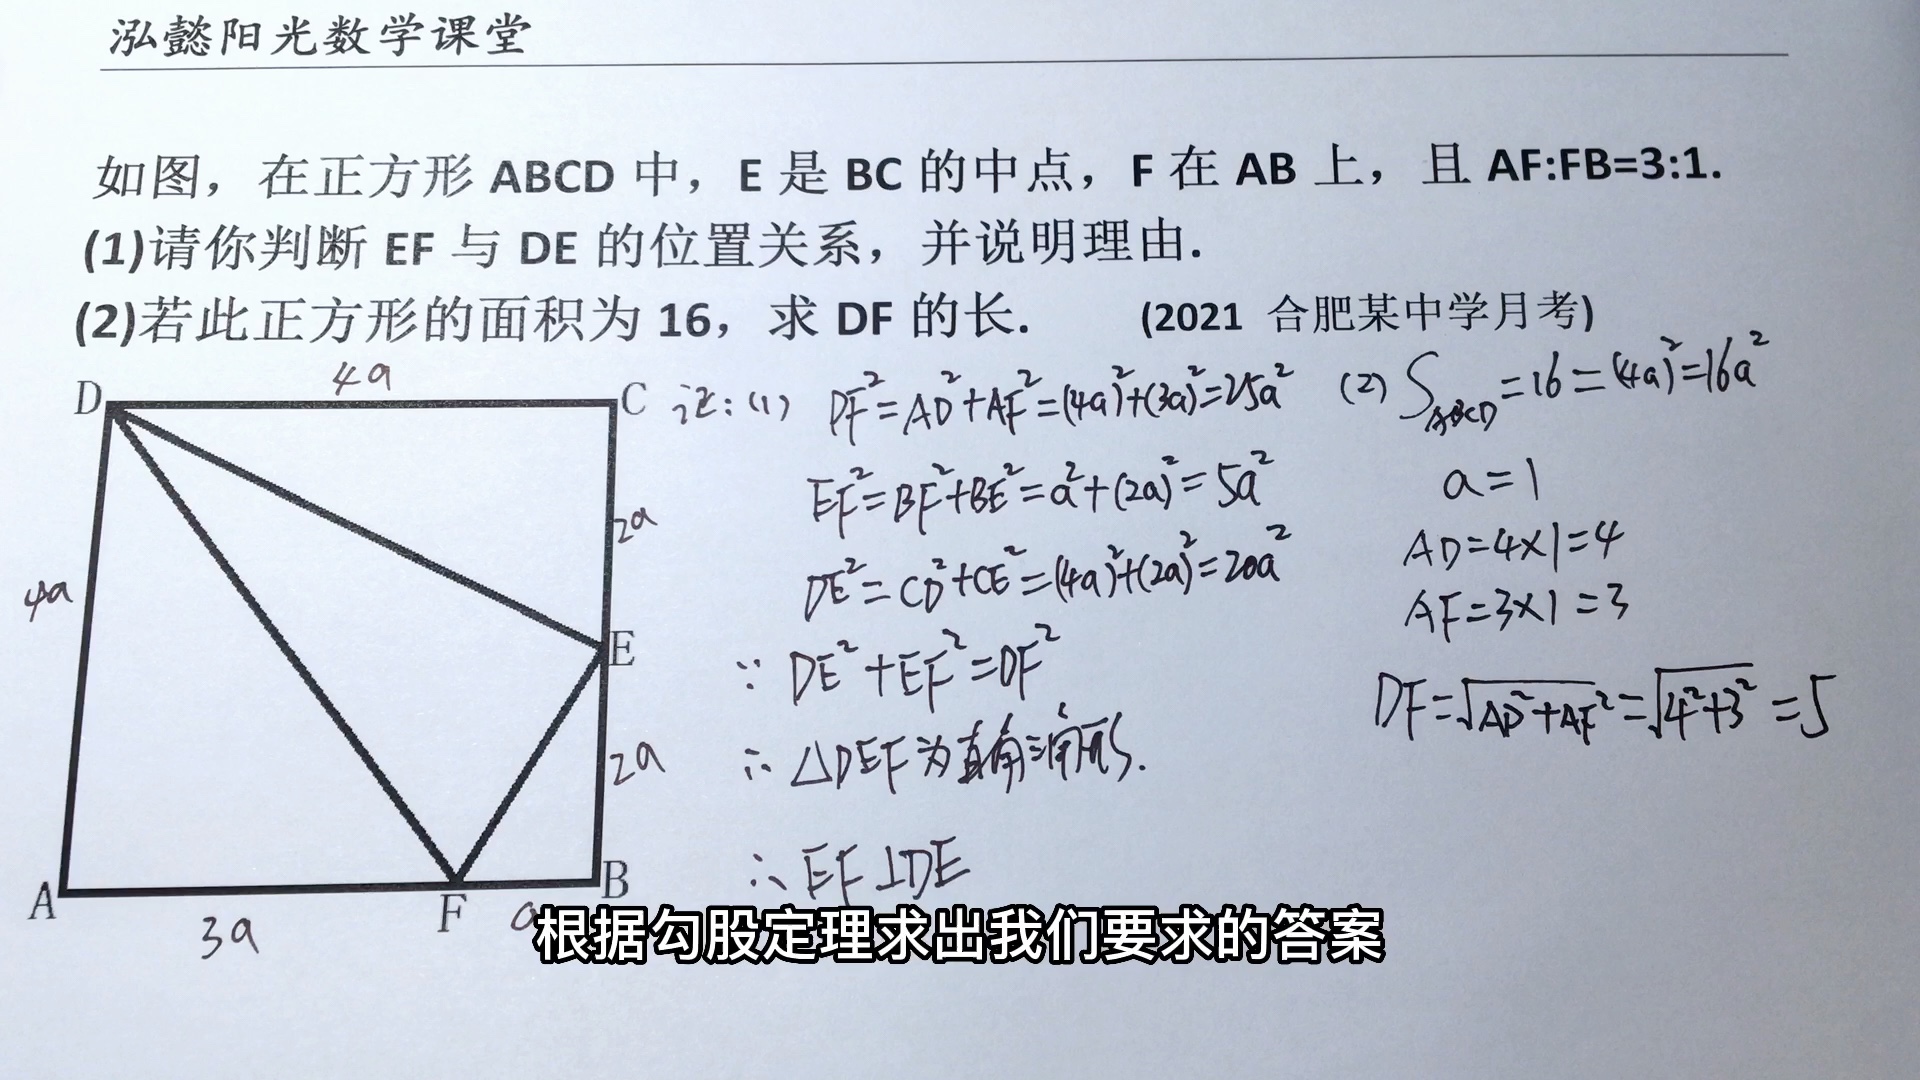 泓懿阳光数学课堂
如图，在正方形 ABCD 中，E 是 BC 的中点，F 在 AB 上，且 AF:FB=3:1.
(1)请你判断 EF 与 DE 的位置关系，并说明理由.
(2)若此正方形的面积为 16，求 DF 的长. (2021 合肥某中学月考)
D 4a C
4a
2a
E
2a
A 3a F a B
证：(1) DF²=AD²+AF²=(4a)²+(3a)²=25a²
EF²=BF²+BE²=a²+(2a)²=5a²
DE²=CD²+CE²=(4a)²+(2a)²=20a²
∵ DE²+EF²=DF²
∴ △DEF为直角三角形.
∴ EF⊥DE
(2) S ABCD =16=(4a)²=16a²
a=1
AD=4×1=4
AF=3×1=3
DF=√AD²+AF²=√4²+3²=5
根据勾股定理求出我们要求的答案